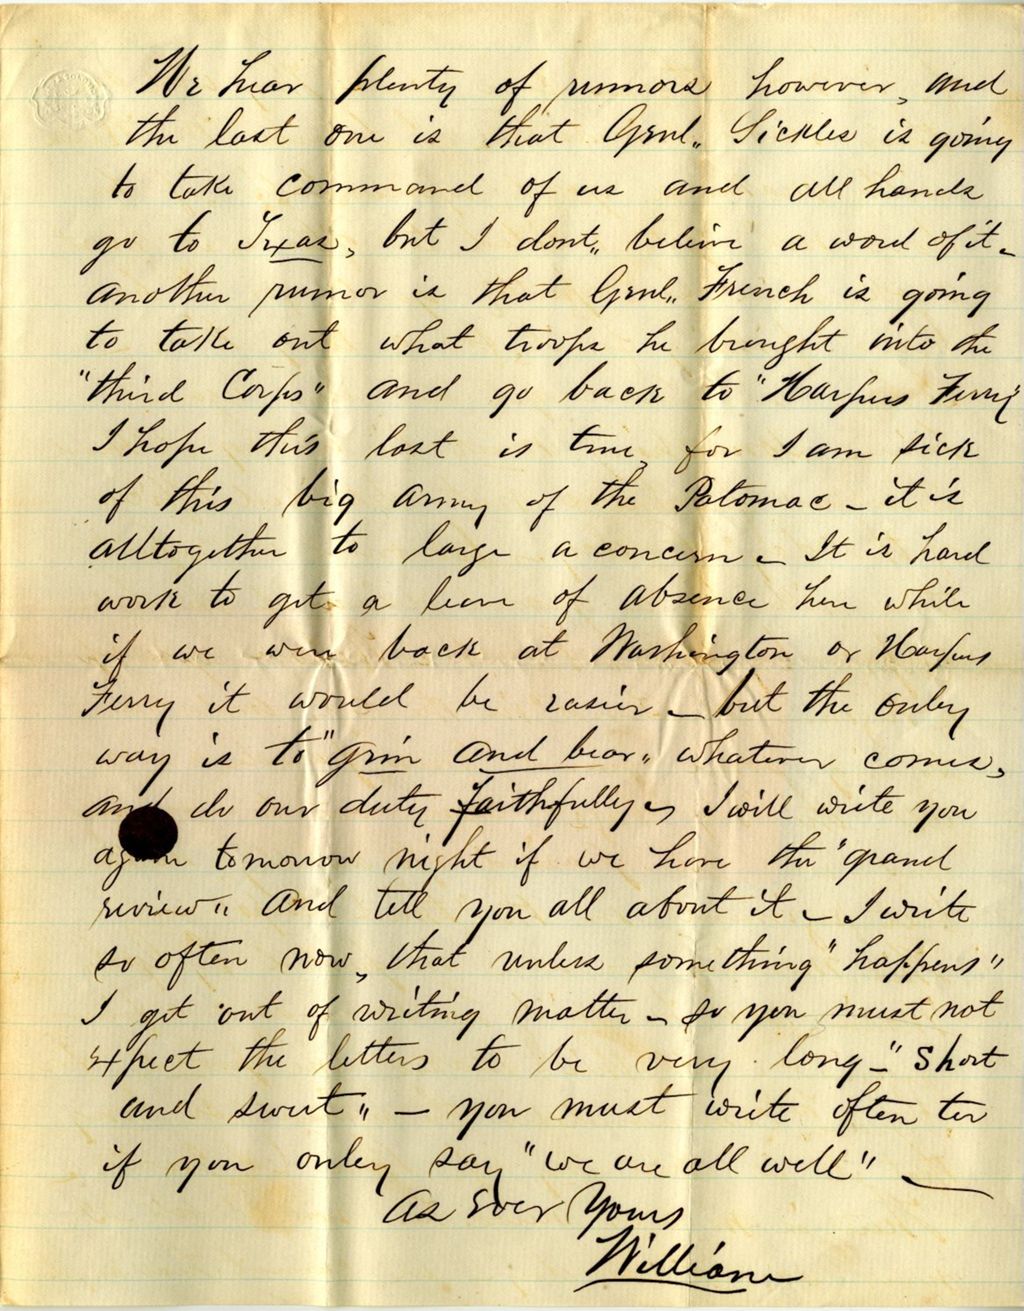 We hear plenty of rumors however, and
the last one is that Genl. Sickles is going
to take command of us and all hands
go to Texas, but I dont believe a word of it -
another rumor is that Genl. French is going
to take out what troops he brought into the
"third Corps" and go back to "Harpers Ferry"
I hope this last is true, for I am sick
of this big army of the Potomac - it is
alltogether to large a concern - It is hard
work to get a leave of absence here while
if we were back at Washington or Harpers
Ferry it would be easier - but the onley
way is to "grin and bear" whatever comes,
and do our duty faithfully - I will write you
again tomorrow night if we have the "grand
review" and tell you all about it - I write
so often now, that unless something "happens"
I get out of writing matter - so you must not
expect the letters to be very long - "Short
and sweet" - you must write often to
if you onley say "we are all well" -
As Ever Yours
William